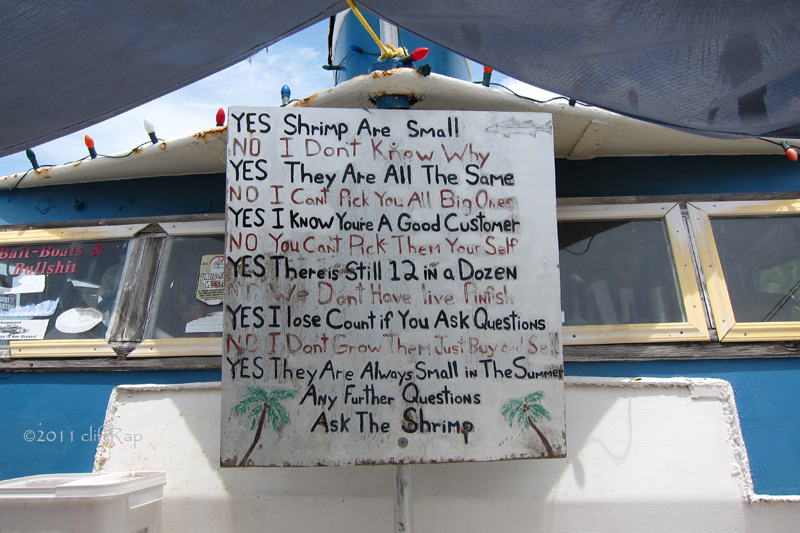 YES Shrimp Are Small!
NO I Don't Know Why
YES They Are All The Same
NO I Can't Pick You All Big Ones
YES I Know You're A Good Customer
NO You Can't Pick Them Your Self
YES There is Still 12 in a Dozen
NO We Don't Have live Pinfish
YES I lose Count if You Ask Questions
NO I Don't Grow Them Just Buy and Sell
YES They Are Always Small in The Summer
Any Further Questions
Ask The Shrimp
Bait-Boats &
Bullshit
©2011 cliff Rap